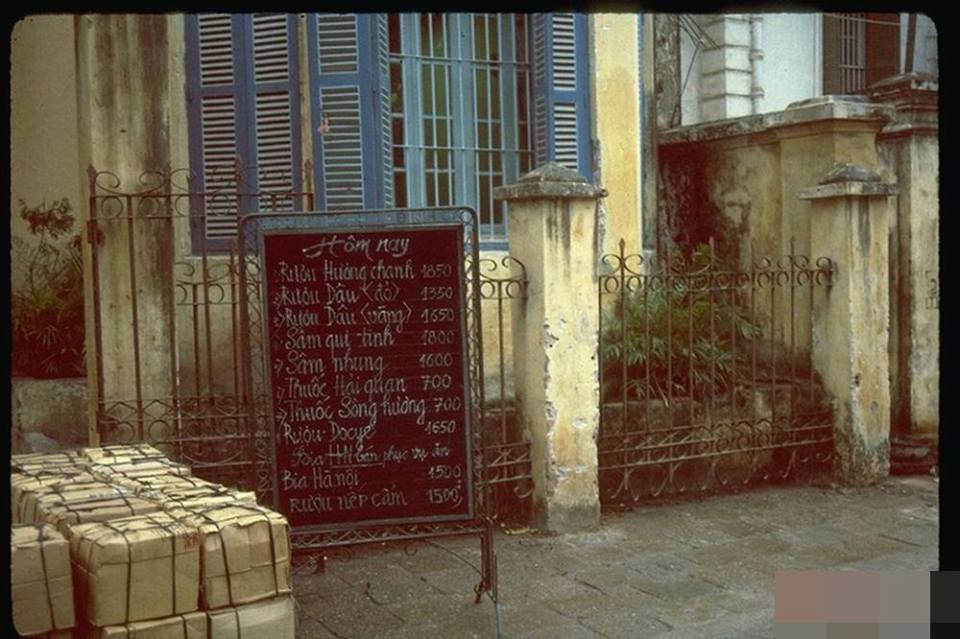 Hôm nay
Rượu Hương chanh 1850
Rượu Dâu <đỏ> 1350
Rượu Dâu <vàng> 1650
Sâm qui tinh 1800
Sâm nhung 1600
Thuốc Hải quan 700
Thuốc Sông hương 700
Rượu 1650
Bia HN bán phục vụ ăn
Bia Hà nội 1500
RƯỢU NẾP CẨM 1500